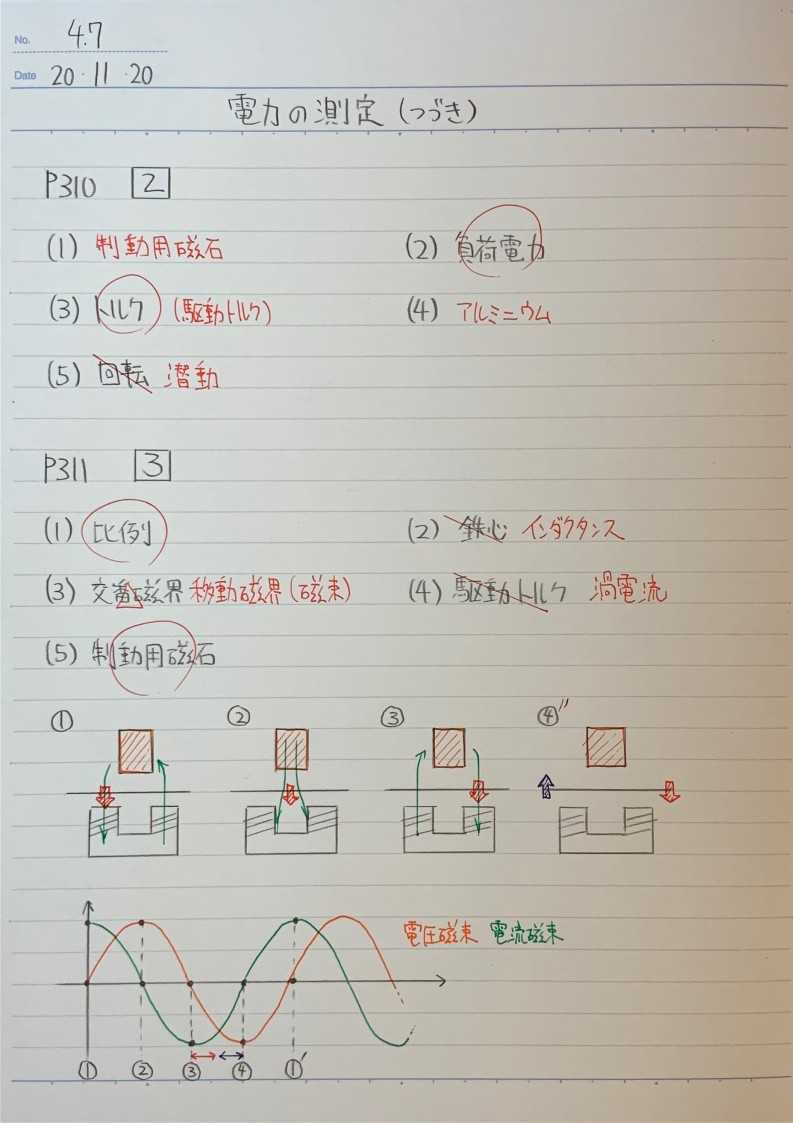 No. 4.7
Date 20・11・20
電力の測定(つづき)
P310 2
(1) 制動用磁石 (2) 負荷電力
(3) トルク (駆動トルク) (4) アルミニウム
(5) 回転 潜動
P311 3
(1) 比例 (2) 鉄心 インダクタンス
(3) 交番磁界 移動磁界(磁束) (4) 駆動トルク 渦電流
(5) 制動用磁石
① ② ③ ④″
電圧磁束 電流磁束
① ② ③ ④ ①′